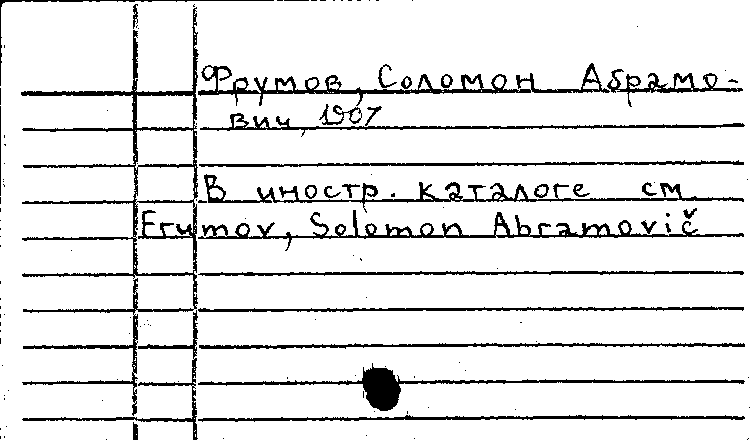 Фрумов, Соломон Абрамо-
вич, 1907
В иностр. каталоге см
Frumov, Solomon Abramovič